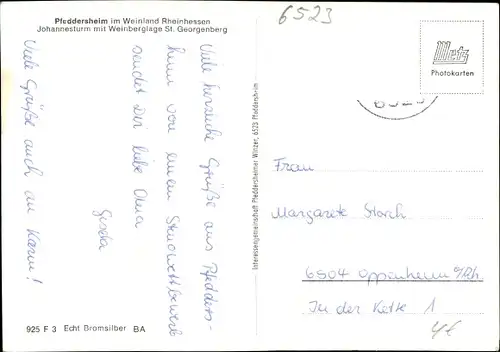 Pfeddersheim im Weinland Rheinhessen
Johannesturm mit Weinberglage St. Georgenberg
Viele herzliche Grüße aus Pfedders-
heim von einem Stadtwettbewerb
sendet Dir liebe Oma
Gisela
Viele Grüße auch an Karin!
925 F 3 Echt Bromsilber BA
Interessengemeinschaft Pfeddersheimer Winzer, 6523 Pfeddersheim
6523
Metz
Photokarten
Frau
Margarete Storch
6504 Oppenheim a/Rh.
In der Kette 1
4€